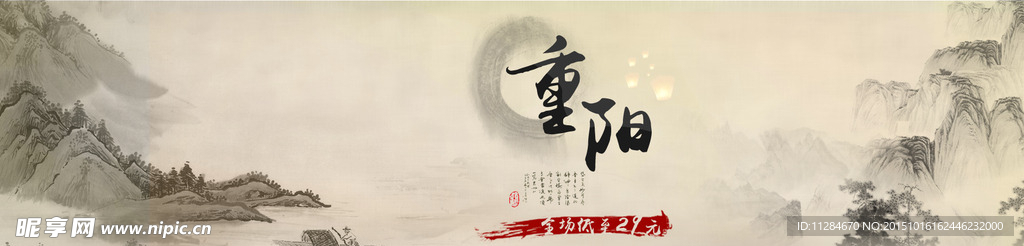 重阳
全场低至29元
昵享网 www.nipic.cn
ID:11284670 NO:20151016162446232000